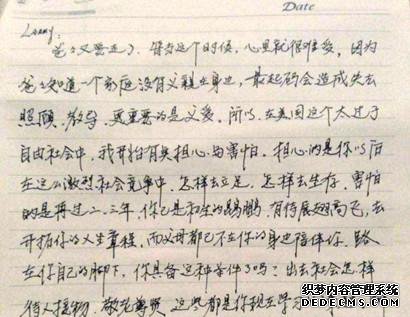 Date
Lenny:
爸爸又要走了. 每当这个时候, 心里就很难受, 因为
爸爸知道一个家庭没有父亲在身边, 最起码会造成失去
照顾、教导, 更重要的是父爱. 所以. 在美国这个太过于
自由社会中, 我开始有点担心与害怕. 担心的是你以后
在这么激烈社会竞争中, 怎样去立足, 怎样去生存. 害怕
的是再过二、三年, 你已是初生的鹏, 有待展翅高飞, 去
开拓你的人生章程, 而父母都已不在你的身边陪伴你. 路
在你自己的脚下, 你具备这种条件了吗? 出去社会怎样
待人接物, 敬老尊贤 这些都是你现在学习
织梦内容管理系统
DEDECMS.COM